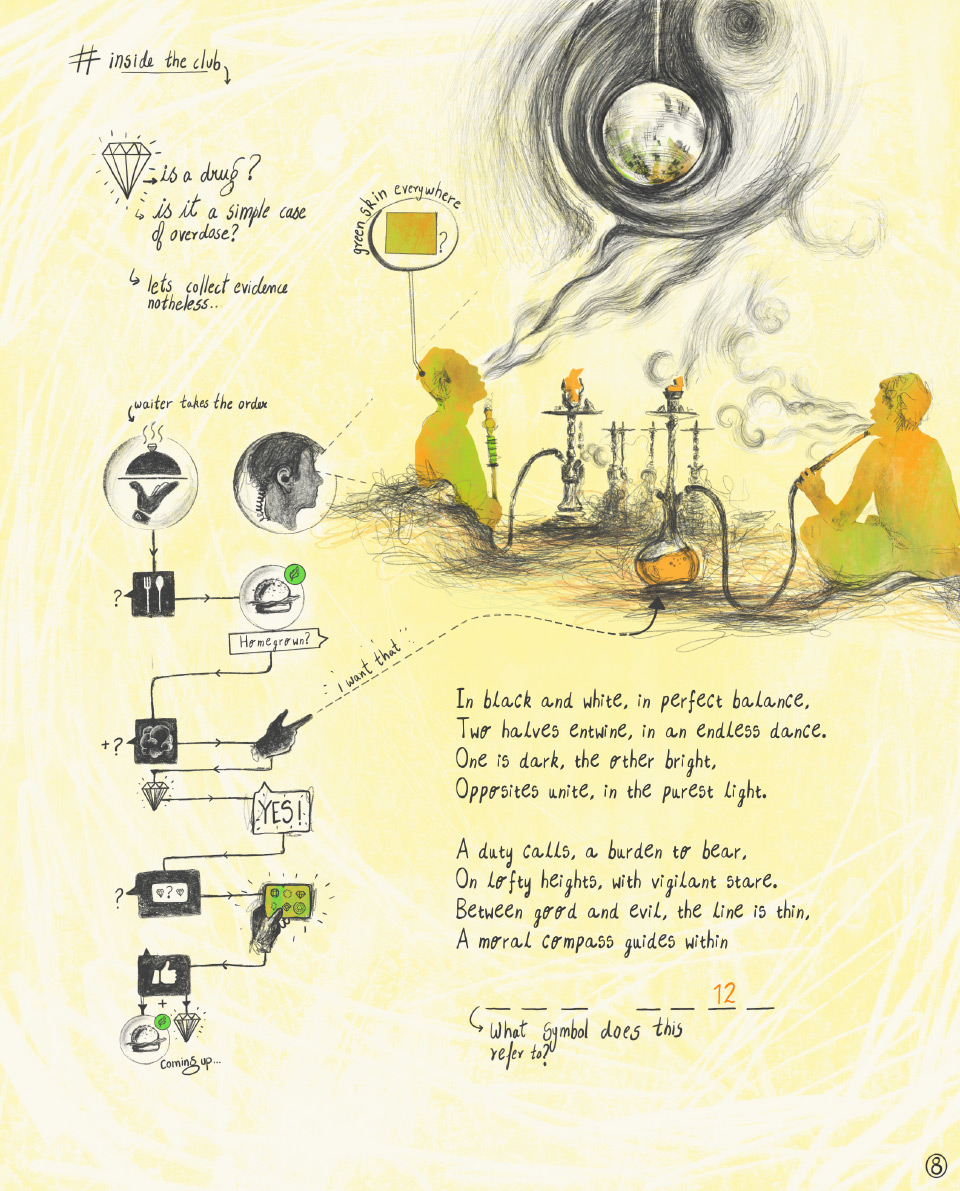 # inside the club
is a drug?
is it a simple case
of overdose?
lets collect evidence
notheless..
green skin everywhere
?
waiter takes the order
?
Homegrown?
I want that
+?
YES!
?
?
+
Coming up...
In black and white, in perfect balance,
Two halves entwine, in an endless dance.
One is dark, the other bright,
Opposites unite, in the purest light.
A duty calls, a burden to bear,
On lofty heights, with vigilant stare.
Between good and evil, the line is thin,
A moral compass guides within
12
What symbol does this
refer to?
8